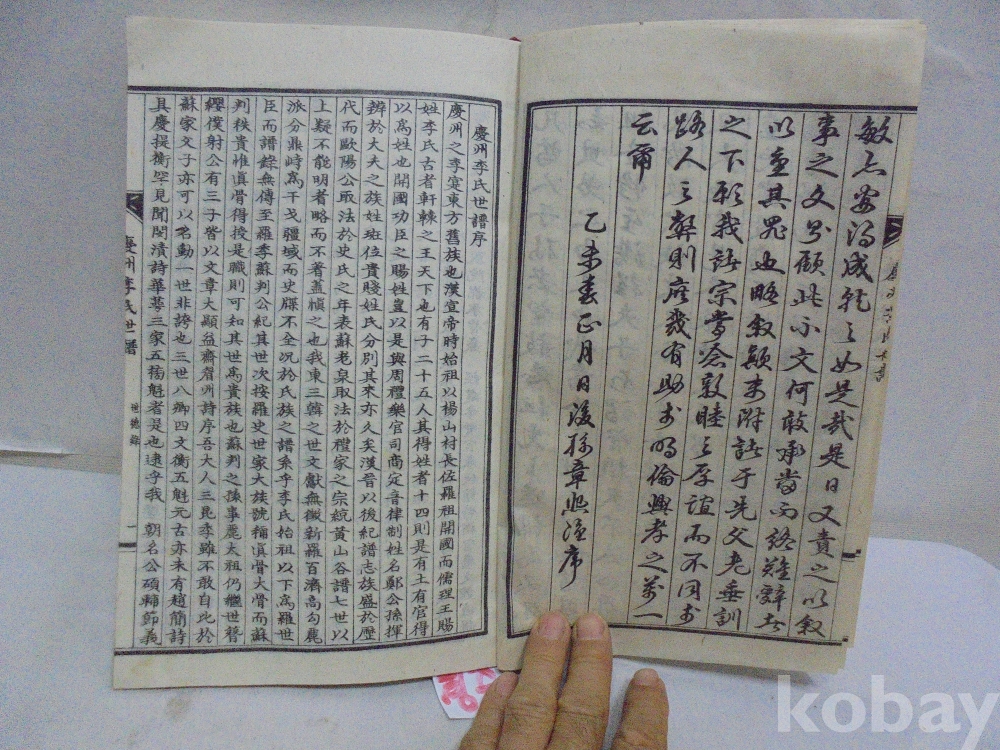 敏不安得成就之如是哉是日又責之以叙
事之文只顧此不文何敢承當而終難辭者
以重其罪也略叙顛末附諸于先父老垂訓
之下願我諸宗當念敦睦之厚誼而不同於
路人之弊則庶幾有助於明倫興孝之萬一
云爾
乙未春正月日後孫章熙謹序
慶州李氏世譜序
慶州之李寔東方舊族也漢宣帝時始祖以楊山村長佐羅祖開國而儒理王賜
姓李氏古者軒轅之王天下也有子二十五人其得姓者十四則是有土有官得
以爲姓也開國功臣之賜姓豈以是與周禮樂官司商定音律制姓名鄭公孫揮
辨於大夫之族姓班位貴賤姓氏分別其來亦久矣漢晉以後紀譜志族盛於歷
代而歐陽公取法於史氏之年表蘇老泉取法於禮家之宗統黃山谷譜七世以
上疑不能明者略而不著蓋愼之也我東三韓之世文獻無徵新羅百濟高句麗
派分鼎峙爲干戈疆域而史牒不全况於氏族之譜系乎李氏始祖以下爲羅世
臣而譜錄無傳至羅季蘇判公紀其世次按羅史世家大族號稱眞骨大骨而蘇
判秩貴惟眞骨得授是職則可知其世爲貴族也蘇判之孫事麗太祖仍繼世簪
纓僕射公有三子皆以文章大顯益齋眉州詩序吾大人三昆季雖不敢自比於
蘇家文子亦可以名動一世非誇也三世八卿四文衡五魁元古亦未有趙簡詩
具慶提衡罕見聞閔漬詩華萼三家五榜魁者是也逮乎我 朝名公碩輔節義
慶州李氏世譜
世德錄
一
kobay